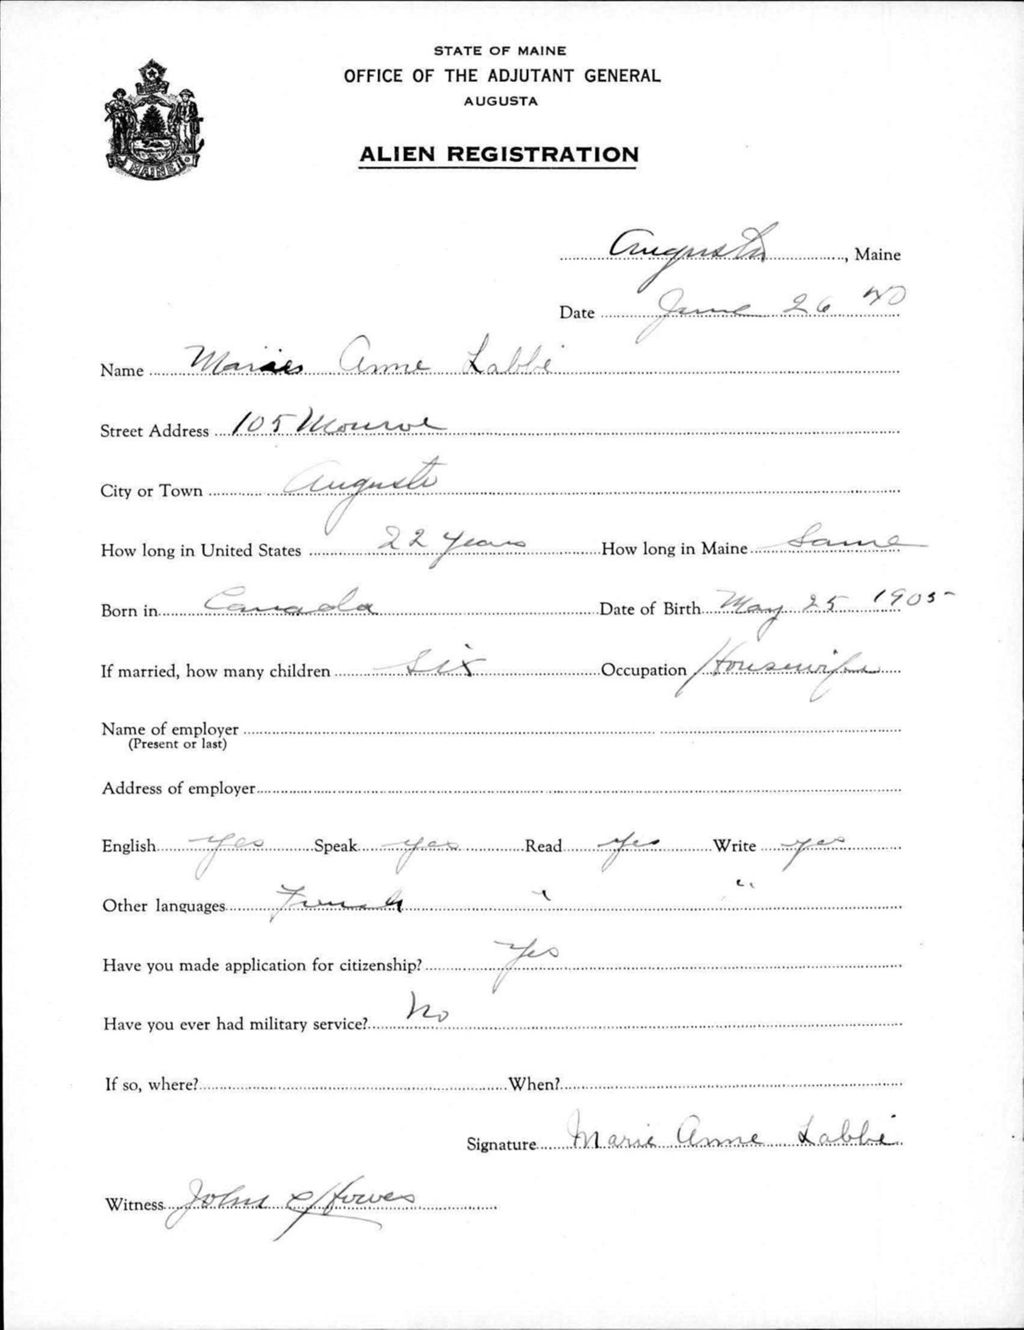 STATE OF MAINE
OFFICE OF THE ADJUTANT GENERAL
AUGUSTA
ALIEN REGISTRATION
MAINE
Augusta, Maine
Date June 26 40
Name Anne Labbé
Street Address 105 Monroe
City or Town Augusta
How long in United States 22 years How long in Maine Same
Born in Canada Date of Birth May 25 1905
If married, how many children six Occupation Housewife
Name of employer
(Present or last)
Address of employer
English yes Speak yes Read yes Write yes
Other languages French " "
Have you made application for citizenship? Yes
Have you ever had military service? No
If so, where? When?
Signature Marie Anne Labbé
Witness John C Howes